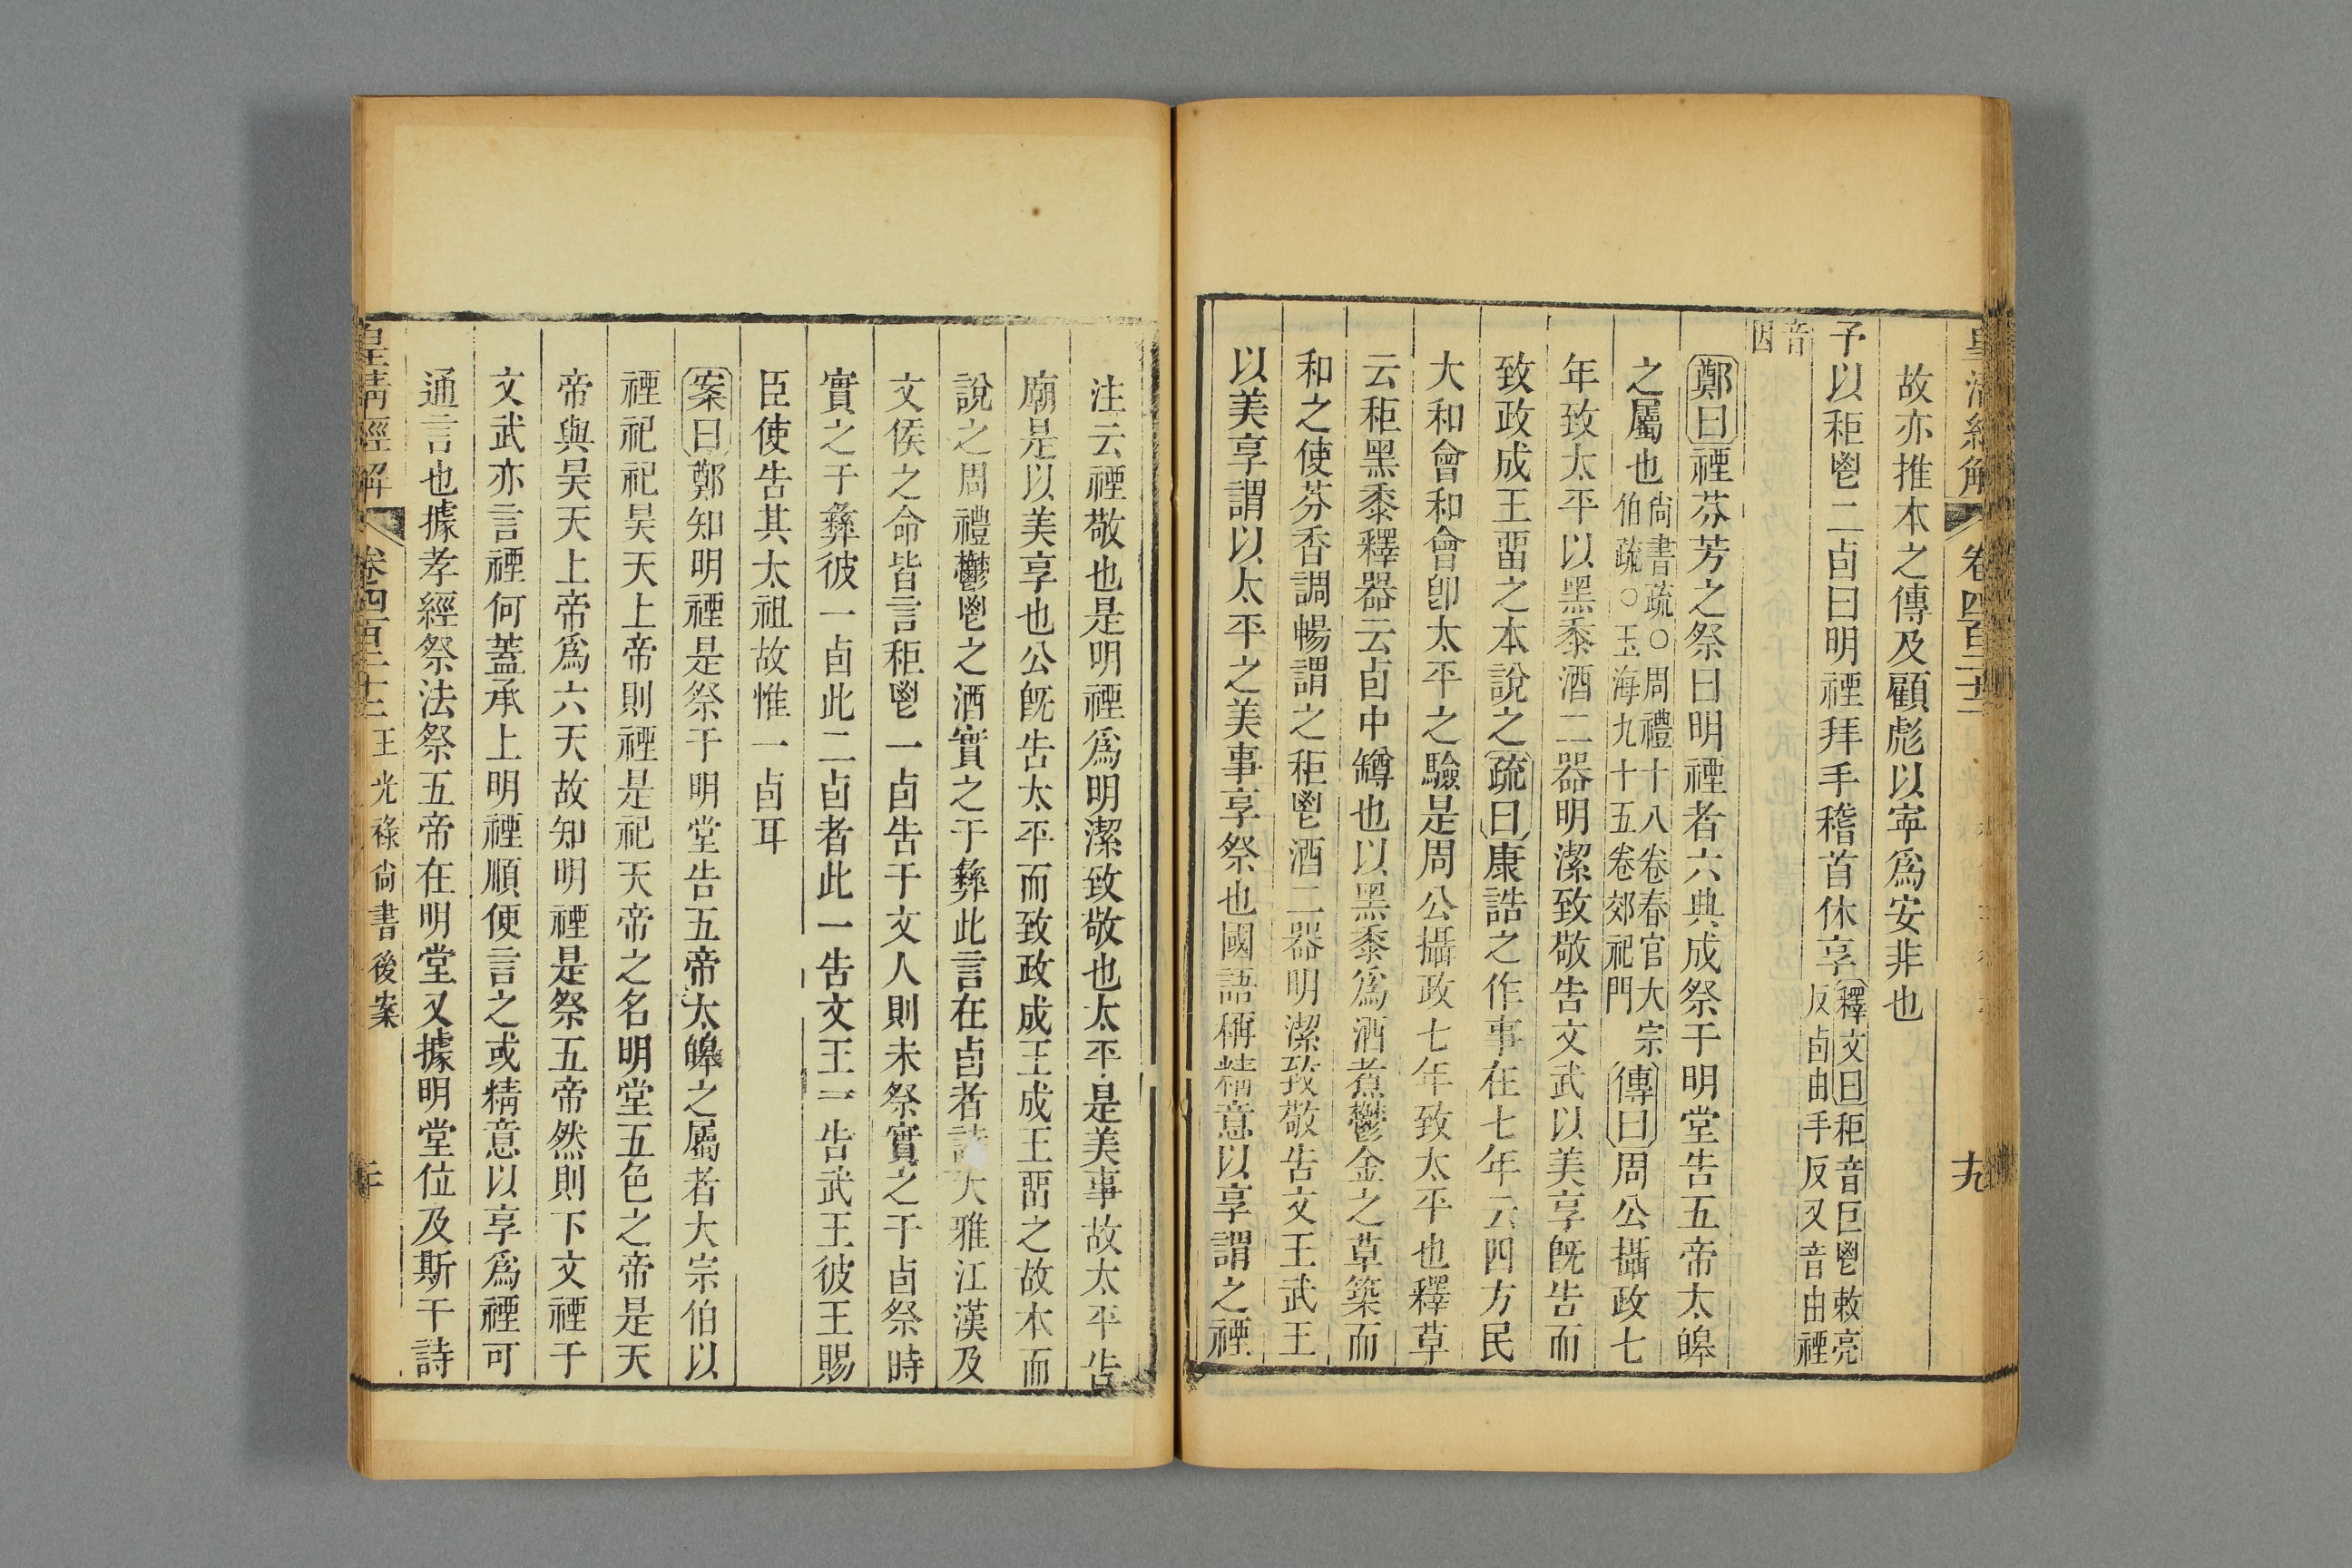 故亦推本之傳及顧彪以寕爲安非也
予以秬鬯二卣曰明禋拜手稽首休享釋文曰秬音巨鬯敕亮反卣由手反又音由禋
音因
鄭曰禋芬芳之祭曰明禋者六典成祭于明堂告五帝太皥
之屬也尚書疏○周禮十八卷春官大宗伯疏○玉海九十五卷郊祀門傳曰周公攝政七
年致太平以黑黍酒二器明潔致敬告文武以美享旣告而
致政成王畱之本說之疏曰康誥之作事在七年云四方民
大和會和會卽太平之驗是周公攝政七年致太平也釋草
云秬黑黍釋器云卣中罇也以黑黍爲酒煮鬱金之草築而
和之使芬香調暢謂之秬鬯酒二器明潔致敬告文王武王
以美享謂以太平之美事享祭也國語稱精意以享謂之禋
注云禋敬也是明禋爲明潔致敬也太平是美事故太平告
廟是以美享也公旣告太平而致政成王成王畱之故本而
說之周禮鬱鬯之酒實之于彝此言在卣者詩大雅江漢及
文侯之命皆言秬鬯一卣告于文人則未祭實之于卣祭時
實之于彝彼一卣此二卣者此一告文王一告武王彼王賜
臣使告其太祖故惟一卣耳
案曰鄭知明禋是祭于明堂告五帝太皥之屬者大宗伯以
禋祀祀昊天上帝則禋是祀天帝之名明堂五色之帝是天
帝與昊天上帝爲六天故知明禋是祭五帝然則下文禋于
文武亦言禋何蓋承上明禋順便言之或精意以享爲禋可
通言也據孝經祭法祭五帝在明堂又據明堂位及斯干詩
皇淸經解 卷四百二十三 王光祿尚書後案